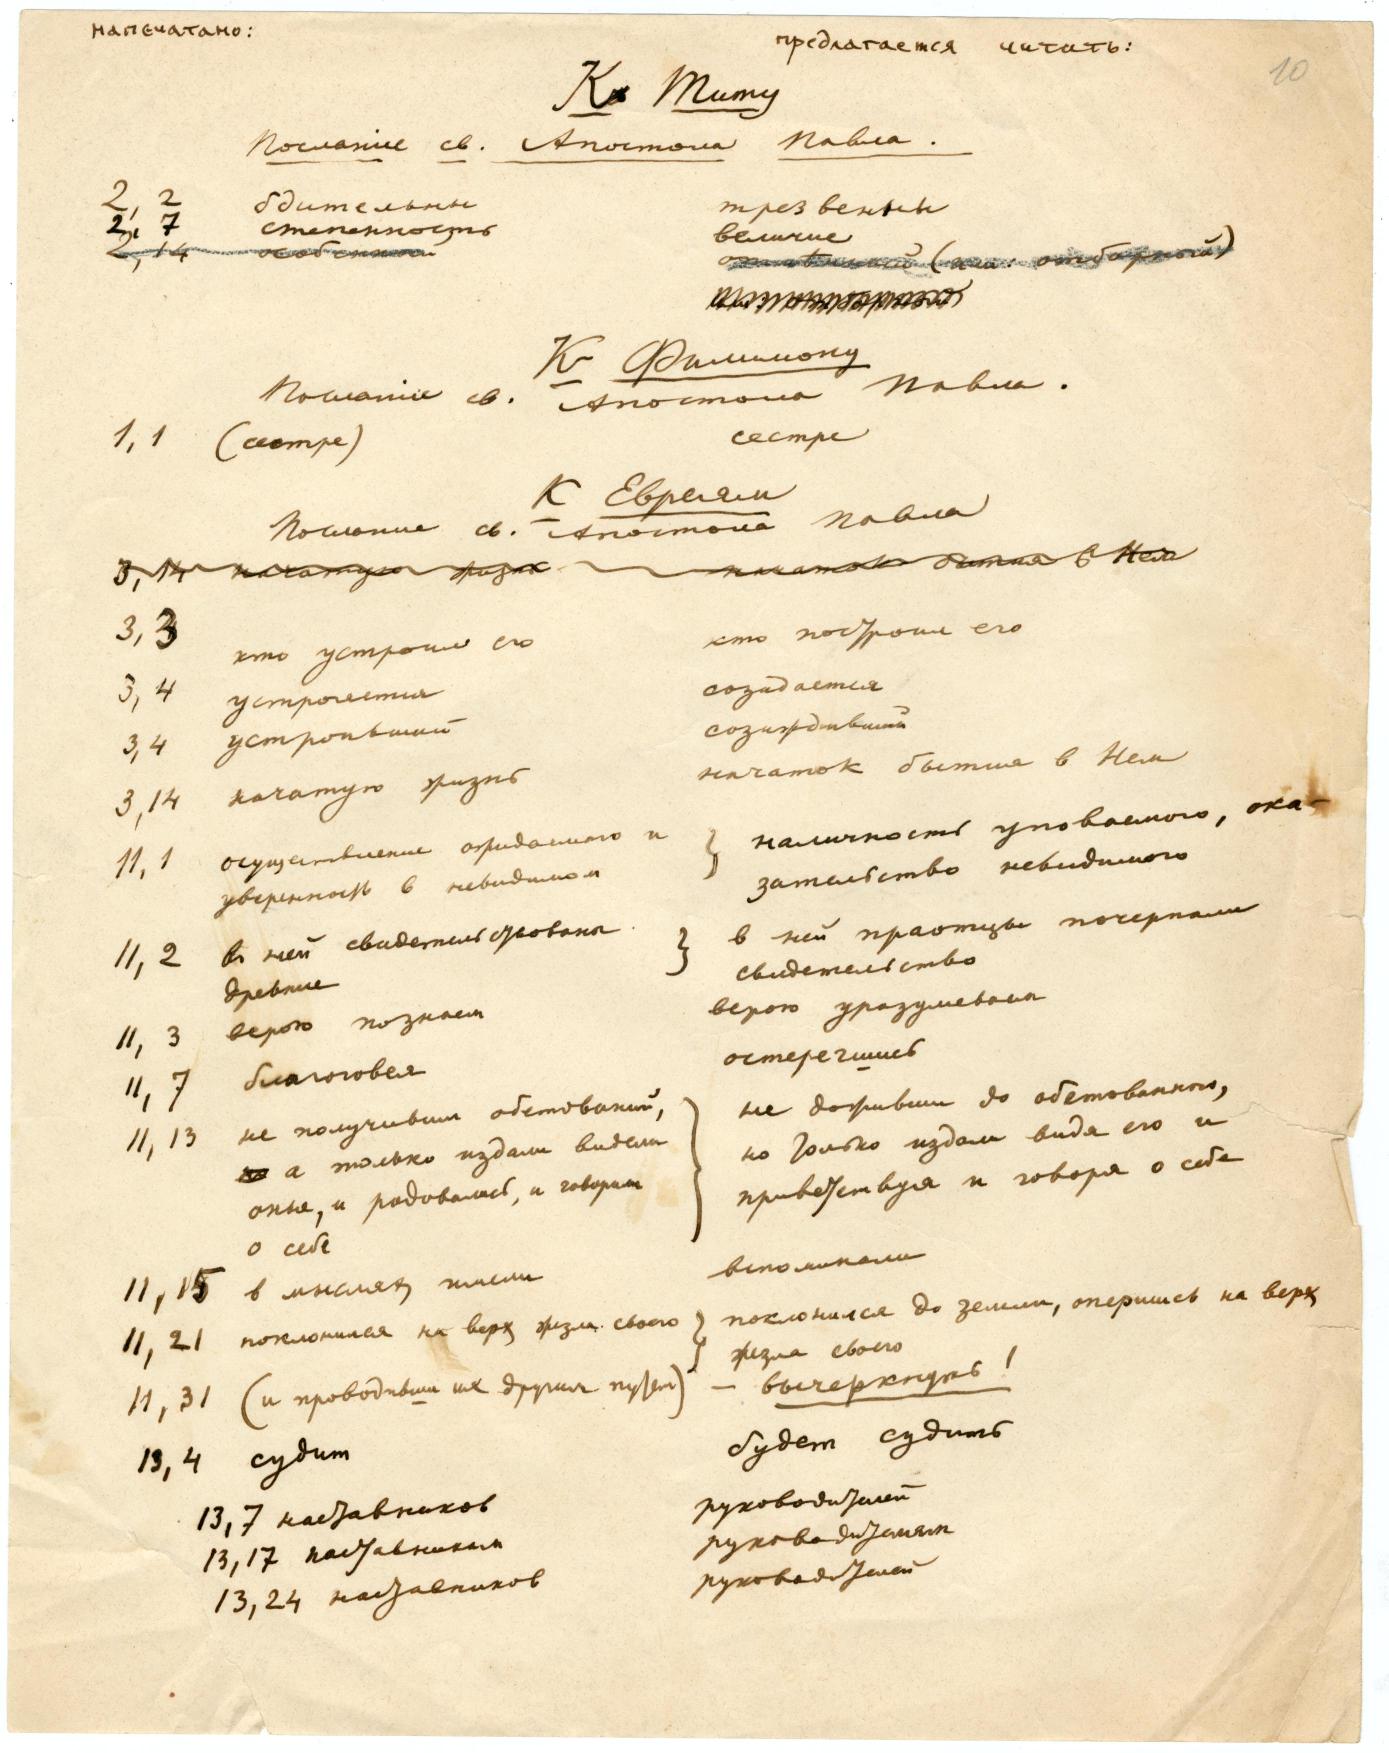 напечатано: предлагается читать:
10
К Титу
Посланiе св. Апостола Павла.
2, 2 бдительны трезвенны
2, 7 степенность величие
2, 14 особенный (или: отборный)
К Филимону
Посланiе св. Апостола Павла.
1, 1 (сестре) сестре
К Евреям
Послание св. Апостола Павла
3, 14 начатую жизнь начаток бытия в Нем
3, 3 кто устроил его кто построил его
3, 4 устрояется созидается
3, 4 устроивший созиждивший
3, 14 начатую жизнь начаток бытия в Нем
11, 1 осуществление ожидаемого и } наличность уповаемого, ока-
уверенность в невидимом зательство невидимого
11, 2 в ней свидетельствованы } в ней праотцы почерпали
древние свидетельство
11, 3 верою познаем верою уразумеваем
11, 7 благоговея остерегшись
11, 13 не получивши обетований, } не доживши до обетованного,
а только издали видели но только издали видя его и
оные, и радовались, и говорили приветствуя и говоря о себе
о себе
11, 15 в мыслях имели вспоминали
11, 21 поклонился на верх жезла своего } поклонился до земли, опершись на верх
жезла своего
11, 31 (и проводивши их другим путем) – вычеркнуть!
13, 4 судит будет судить
13, 7 наставников руководителей
13, 17 наставникам руководителям
13, 24 наставников руководителей